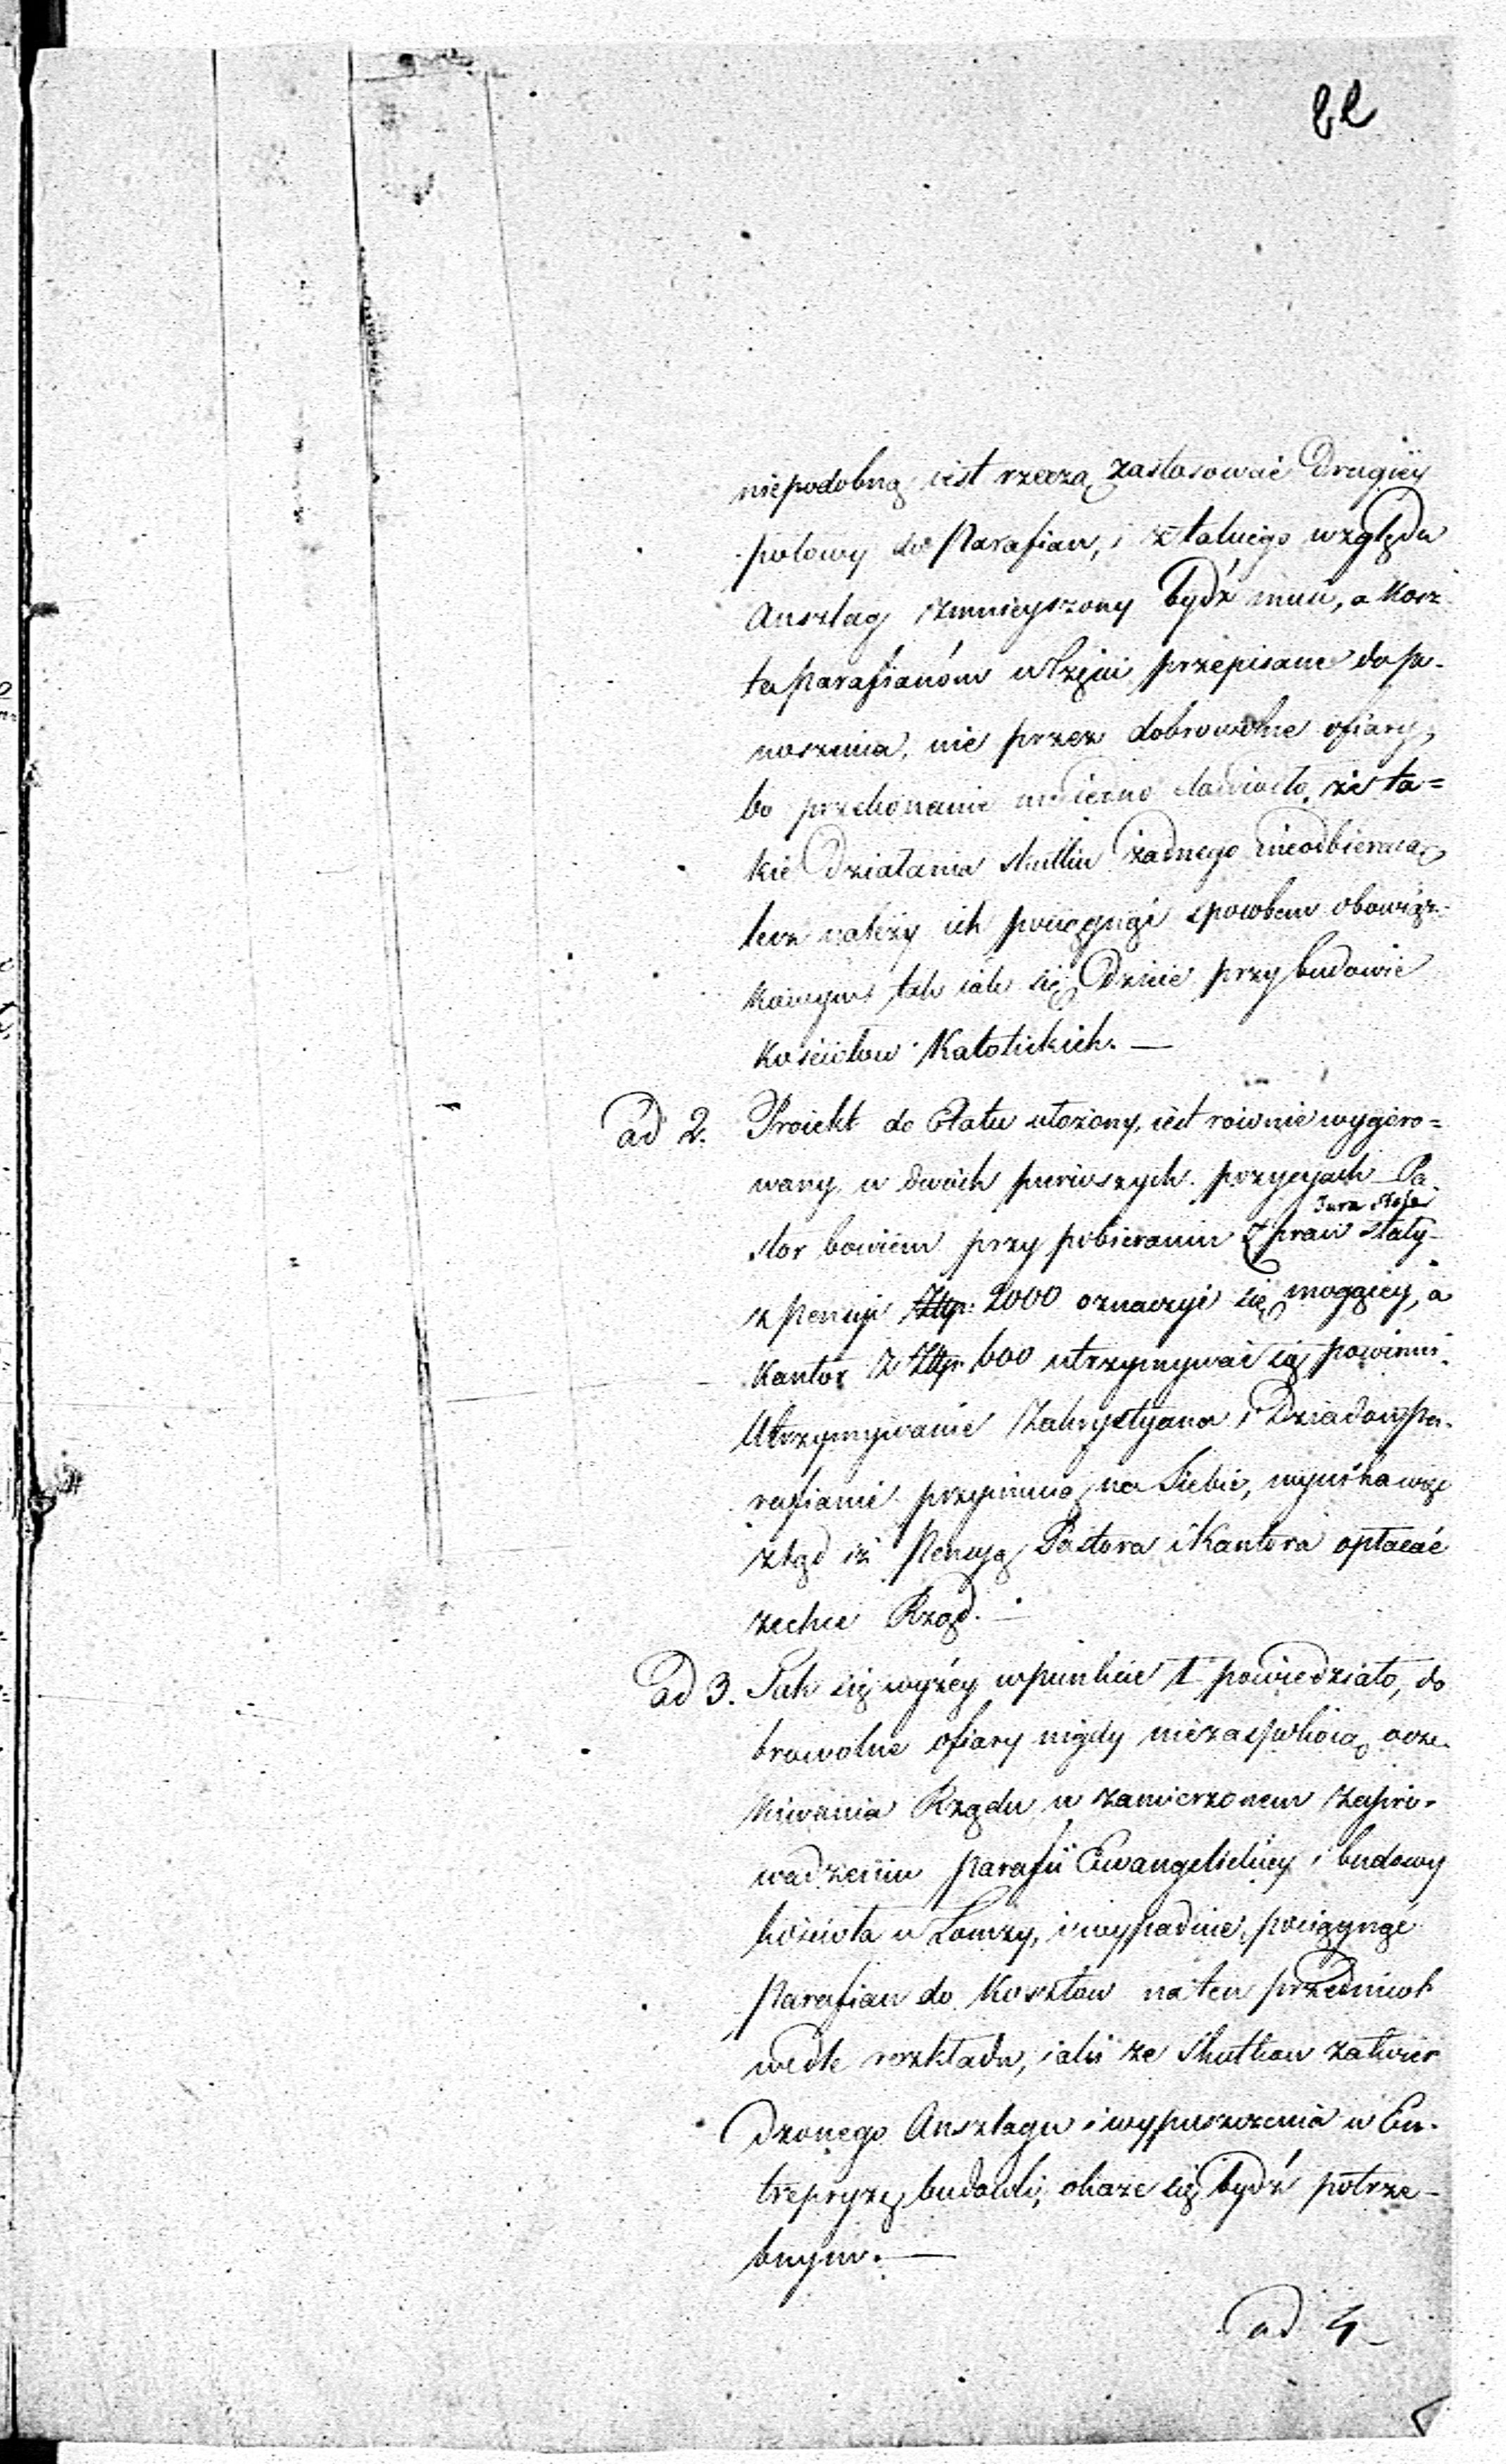 22
niepodobną iest rzeczą zastosować Drugiey
połowy do Parafian, i z takiego względu
Anszlag zmnieyszony bydź musi, a Kosz
ta Parafianóm w Części przepisane do po-
noszenia, nie przez dobrowolne ofiary,
bo przekonanie że ta=
kie Działania skutku żadnego nieodbieraią,
lecz należy ich pociągnąć sposobem obowiąz-
kowym tak iak się Dzieie przy budowie
Kościołow Katolickich. —
ad 2. Proiekt do Etatu ułożony, iest rownie wygóro=
wany w dwóch pierwszych pozycyach Pa-
Jura Stolae
stor bowiem przy pobieraniu z praw stały
z Pensyi Złłp. 2000 oznaczyć się mogącey, a
Kantor z Złłp. 600 utrzymywać się powinni.
Utrzymywanie Zakrystyana i Dziadów Pa-
rafianie przyimuią na Siebie,
ztąd iż Pensyą Pastora i Kantora opłacać
zechce Rząd. —
ad 3. Jak się wyżey w punkcie 1 powiedziało, do
browolne ofiary nigdy niezaspokoią ocze-
kiwania Rządu w zamierzonem zapro-
wadzeniu Parafii Ewangelickiey i budowy
kościoła w Łomży, i wypadnie, pociągnąć
Parafian do Kosztow na ten przedmiot
wedle rozkładu, iaki ze Skutkow zatwier
dzonego Anszlagu i wypuszczenia w En-
trepryzę budowli, okaże się bydź potrze-
bnym. —
ad 4